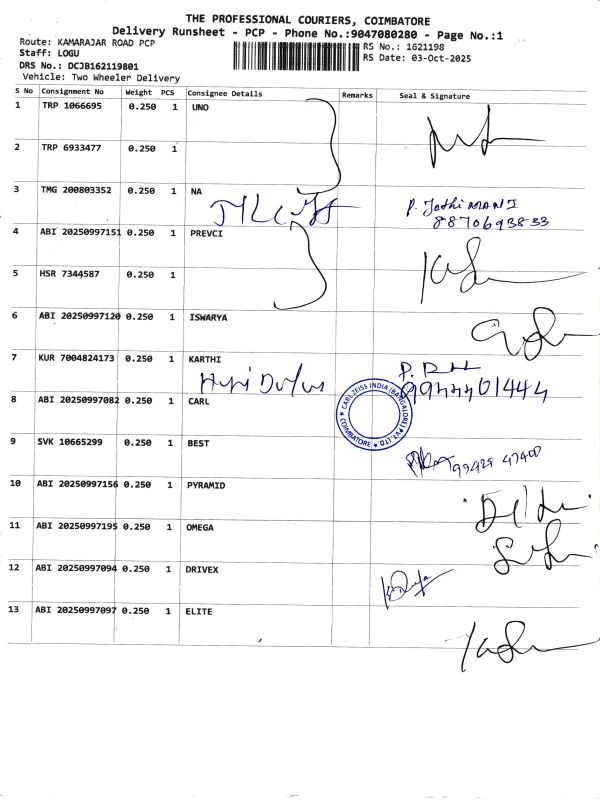 THE PROFESSIONAL COURIERS, COIMBATORE
Delivery Runsheet - PCP - Phone No.:9047080280 - Page No.:1
Route: KAMARAJAR ROAD PCP
Staff: LOGU
DRS No.: DCJB162119801
Vehicle: Two Wheeler Delivery
RS No.: 1621198
RS Date: 03-Oct-2025
S No Consignment No Weight PCS Consignee Details Remarks Seal & Signature
1 TRP 1066695 0.250 1 UNO
2 TRP 6933477 0.250 1
3 TMG 200803352 0.250 1 NA
P. Jothi MANI
8870693833
4 ABI 20250997151 0.250 1 PREVCI
5 HSR 7344587 0.250 1
6 ABI 20250997120 0.250 1 ISWARYA
7 KUR 7004824173 0.250 1 KARTHI
9944401444
8 ABI 20250997082 0.250 1 CARL
CARL ZEISS INDIA (BANGALORE) PVT. LTD. ★ COIMBATORE ★
9 SVK 10665299 0.250 1 BEST
99429 47400
10 ABI 20250997156 0.250 1 PYRAMID
11 ABI 20250997195 0.250 1 OMEGA
12 ABI 20250997094 0.250 1 DRIVEX
13 ABI 20250997097 0.250 1 ELITE